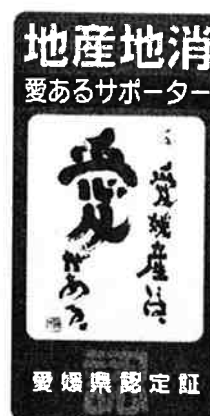 地産地消
愛あるサポーター
愛媛産には、
愛がある。
愛媛県認定証